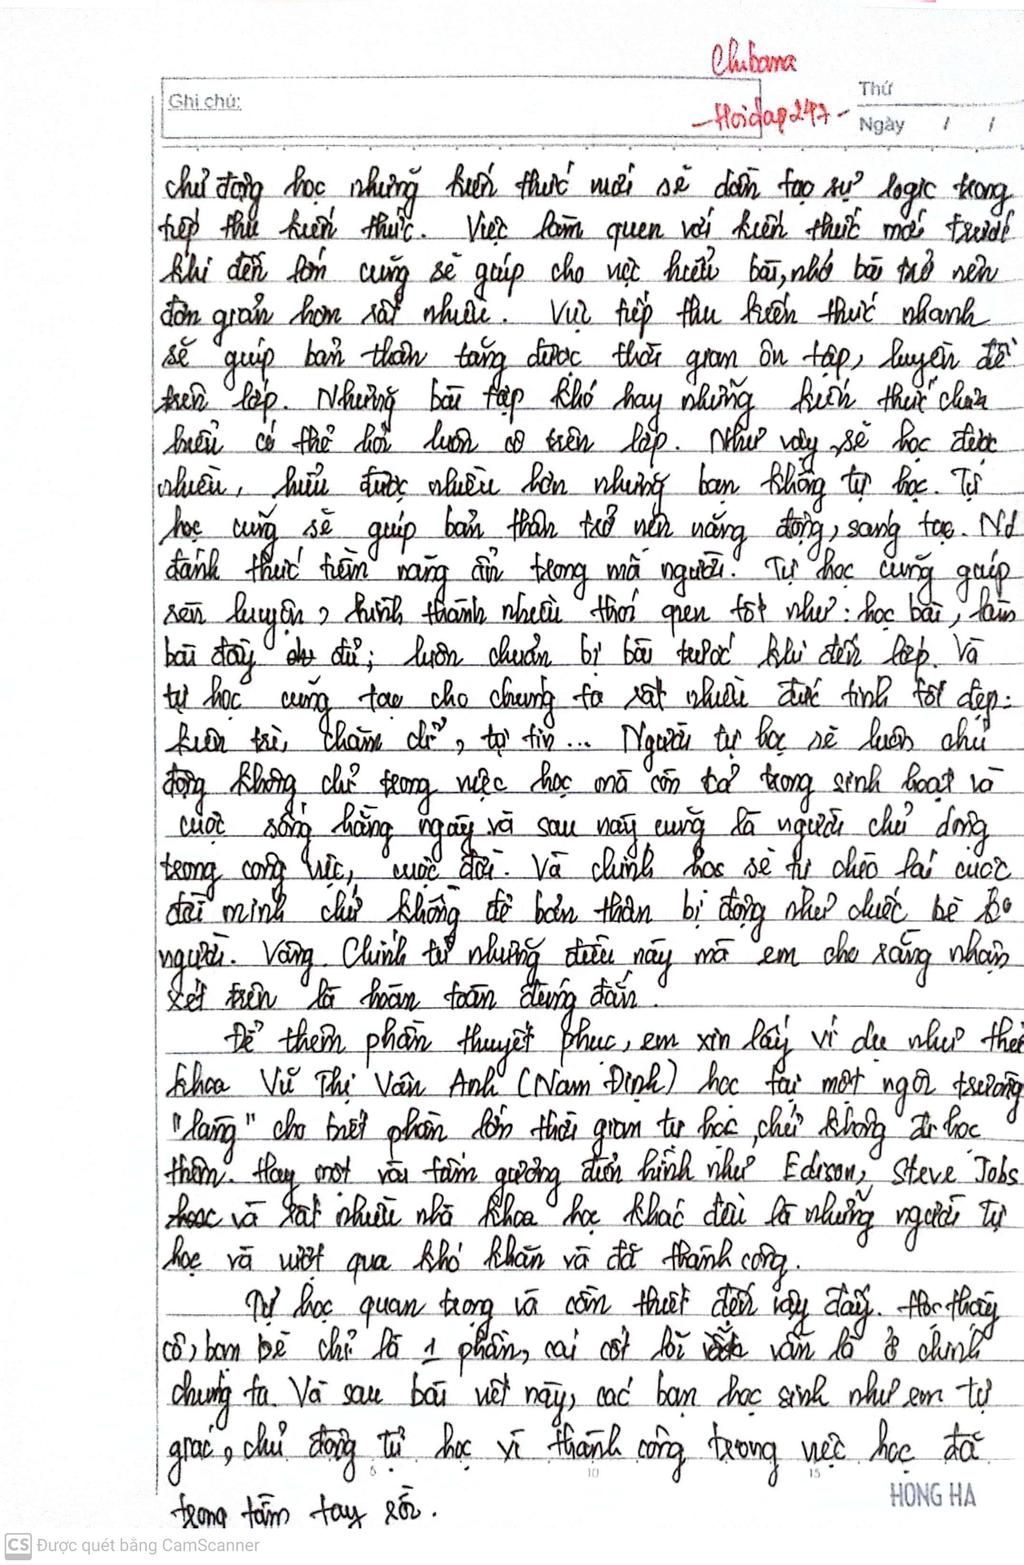 Chibana
Ghi chú:
-Hoidap247-
Thứ
Ngày / /
chủ động học những kiến thức mới sẽ dần tạo sự logic trong
tiếp thu kiến thức. Việc làm quen với kiến thức mới trước
khi đến lớp cũng sẽ giúp cho việc hiểu bài, nhớ bài trở nên
đơn giản hơn rất nhiều. Việc tiếp thu kiến thức nhanh
sẽ giúp bản thân tăng được thời gian ôn tập, luyện đề
trên lớp. Những bài tập khó hay những kiến thức chưa
hiểu có thể hỏi luôn cô trên lớp. Như vậy sẽ học được
nhiều, hiểu được nhiều hơn những bạn không tự học. Tự
học cũng sẽ giúp bản thân trở nên năng động, sáng tạo. Nó
đánh thức tiềm năng ẩn trong mỗi người. Tự học cũng giúp
rèn luyện, hình thành nhiều thói quen tốt như: học bài, làm
bài đầy đủ; luôn chuẩn bị bài trước khi đến lớp. Và
tự học cũng tạo cho chúng ta rất nhiều đức tính tốt đẹp:
kiên trì, chăm chỉ, tự tin... Người tự học sẽ luôn chủ
động không chỉ trong việc học mà còn cả trong sinh hoạt và
cuộc sống hằng ngày và sau này cũng là người chủ động
trong công việc, cuộc đời. Và chính họ sẽ tự chèo lái cuộc
đời mình chứ không để bản thân bị động như chiếc bè
người. Vâng. Chính từ những điều này mà em cho rằng nhận
xét trên là hoàn toàn đúng đắn.
Để thêm phần thuyết phục, em xin lấy ví dụ như thủ
khoa Vũ Thị Vân Anh (Nam Định) học tại một ngôi trường
"làng" cho biết phần lớn thời gian tự học, chứ không đi học
thêm. Hay một vài tấm gương điển hình như Edison, Steve Jobs
và rất nhiều nhà khoa học khác đều là những người tự
học và vượt qua khó khăn và đã thành công.
Tự học quan trọng và cần thiết đến vậy đấy. Học thầy
cô, bạn bè chỉ là 1 phần, cái cốt lõi vẫn là ở chính
chúng ta. Và sau bài viết này, các bạn học sinh như em tự
giác, chủ động tự học vì thành công trong việc học đã
trong tầm tay rồi.
5 10 15
HONG HA
CS Được quét bằng CamScanner